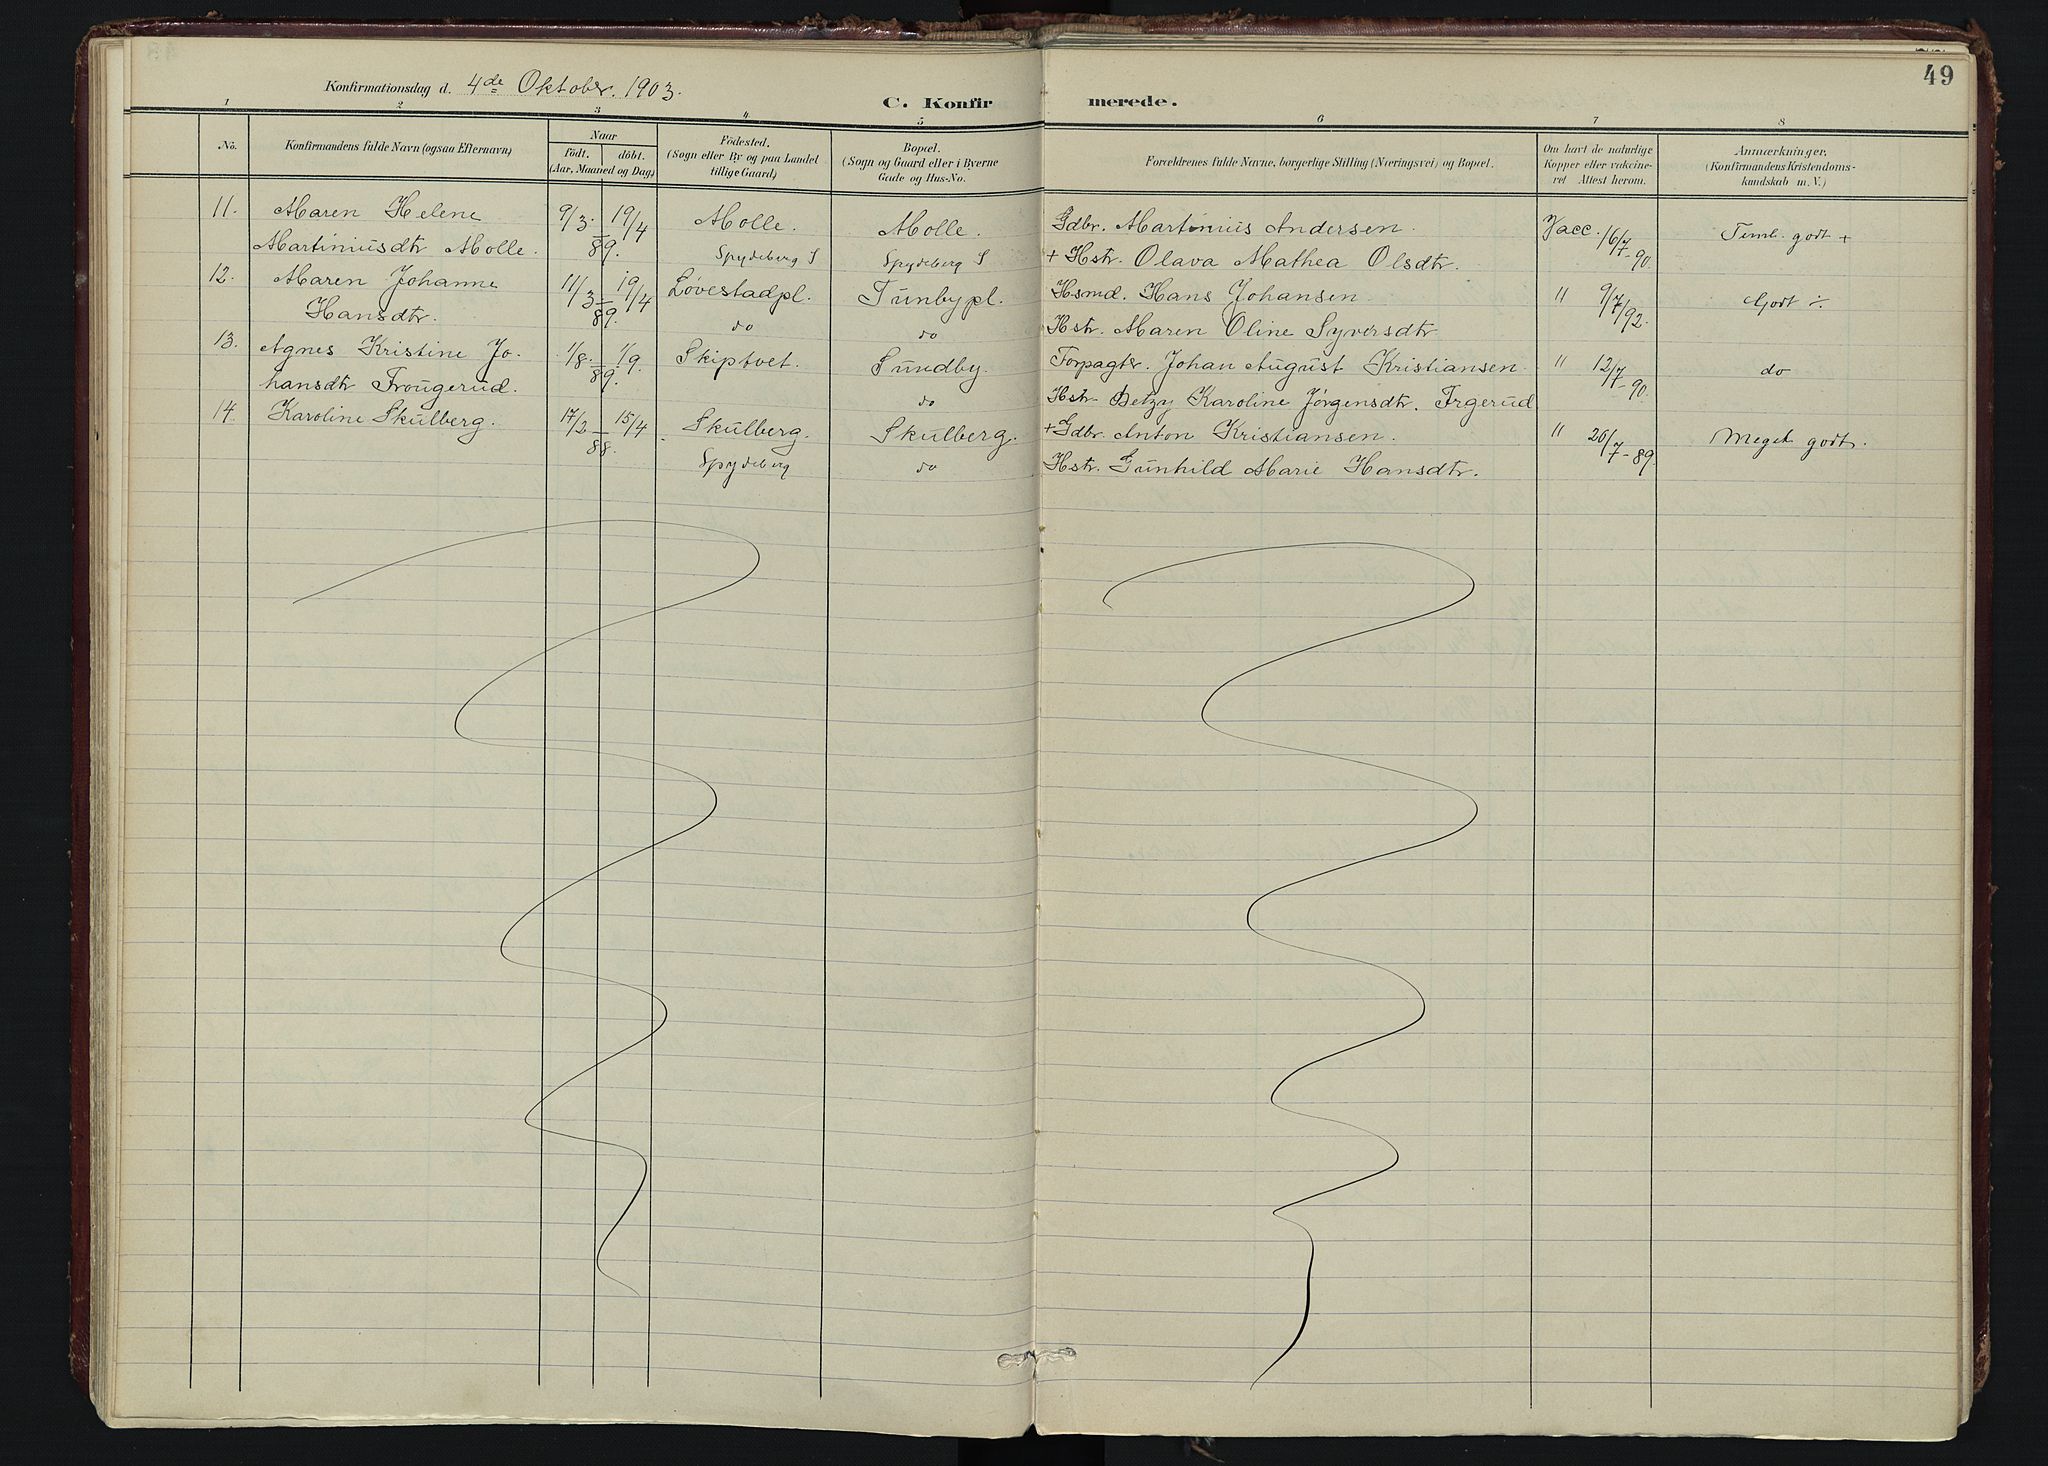 49
Konfirmationsdag d. 4de Oktober. 1903.
C. Konfirmerede.
1 2 3 4 5 6 7 8
No.
Konfirmandens fulde Navn (ogsaa Efternavn)
Naar
födt. döbt.
(Aar, Maaned og Dag)
Födested.
(Sogn eller By og paa Landet
tillige Gaard)
Bopæl.
(Sogn og Gaard eller i Byerne
Gade og Hus-No.
Forældrenes fulde Navne, borgerlige Stilling (Næringsvei) og Bopæl.
Om havt de naturlige
Kopper eller vakcine-
ret Attest herom.
Anmærkninger.
(Konfirmandens Kristendoms-
kundskab m. V.)
11. Maren Helene 9/3. 19/4 Molle. Molle. Gdbr. Martinius Andersen. Vacc. 16/7-90. Teml. godt +
Martiniusdtr Molle. 89. Spydeberg S Spydeberg S + Hstr. Olava Mathea Olsdtr.
12. Maren Johanne 11/3 19/4 Løvestadpl. Tunbypl. Hsmd. Hans Johansen " 9/7/92. Godt ÷
Hansdtr. 89. do do Hstr. Maren Oline Syversdtr
13. Agnes Kristine Jo- 1/8. 1/9. Skiptvet. Sundby. Forpagter. Johan August Kristiansen. " 12/7-90. do
hansdtr Frougerud. 89. do Hstr. Betzy Karoline Jørgensdtr. Frgerud
14. Karoline Skulberg. 17/2 15/4 Skulberg. Skulberg. + Gdbr. Anton Kristiansen. " 26/7-89. Meget godt.
88. Spydeberg do Hstr. Gunhild Marie Hansdtr.